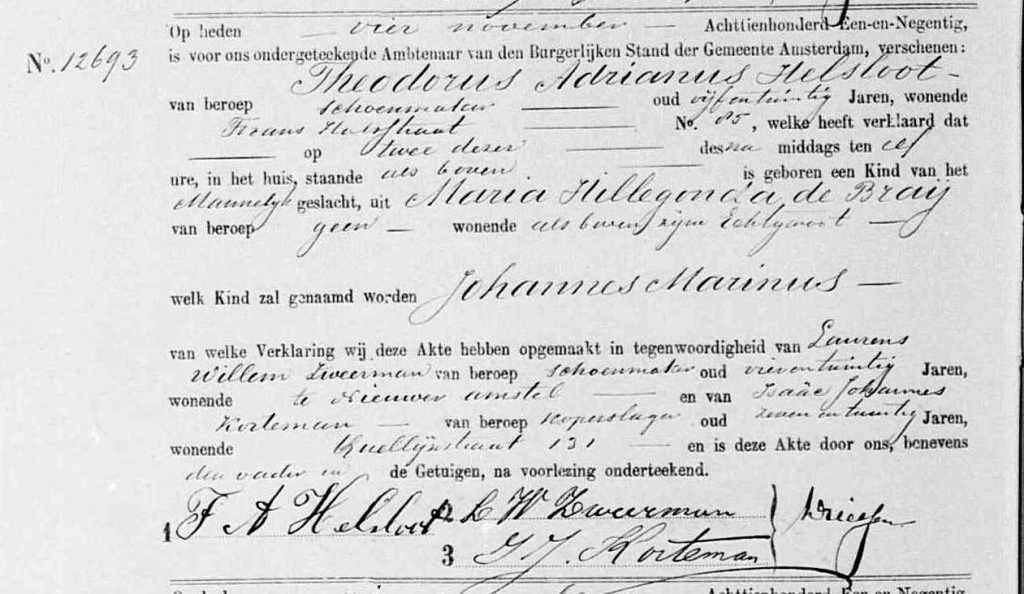 Op heden — vier november — Achttienhonderd Een-en-Negentig,
No. 12693
is voor ons ondergeteekende Ambtenaar van den Burgerlijken Stand der Gemeente Amsterdam, verschenen:
Theodorus Adrianus Helsloot —
van beroep schoenmaker — oud vijfentwintig Jaren, wonende
Frans Halsstraat — No. 85, welke heeft verklaard dat
— op twee dezer — des na middags ten elf
ure, in het huis, staande als boven — is geboren een Kind van het
Mannelijk geslacht, uit Maria Hillegonda de Braij
van beroep geen — wonende als boven, zijne Echtgenoot —
welk Kind zal genaamd worden Johannes Marinus —
van welke Verklaring wij deze Akte hebben opgemaakt in tegenwoordigheid van Laurens
Willem Zweerman van beroep schoenmaker oud vierentwintig Jaren,
wonende te Nieuwer amstel — en van Isaäc Johannes
Korteman — van beroep koperslager oud zeven en twintig Jaren,
wonende Quellijnstraat 131 — en is deze Akte door ons, benevens
den vader en de Getuigen, na voorlezing onderteekend.
1 T A Helsloot 2 L W Zweerman
3 I J. Korteman
Op heden Achttienhonderd Een-en-Negentig,